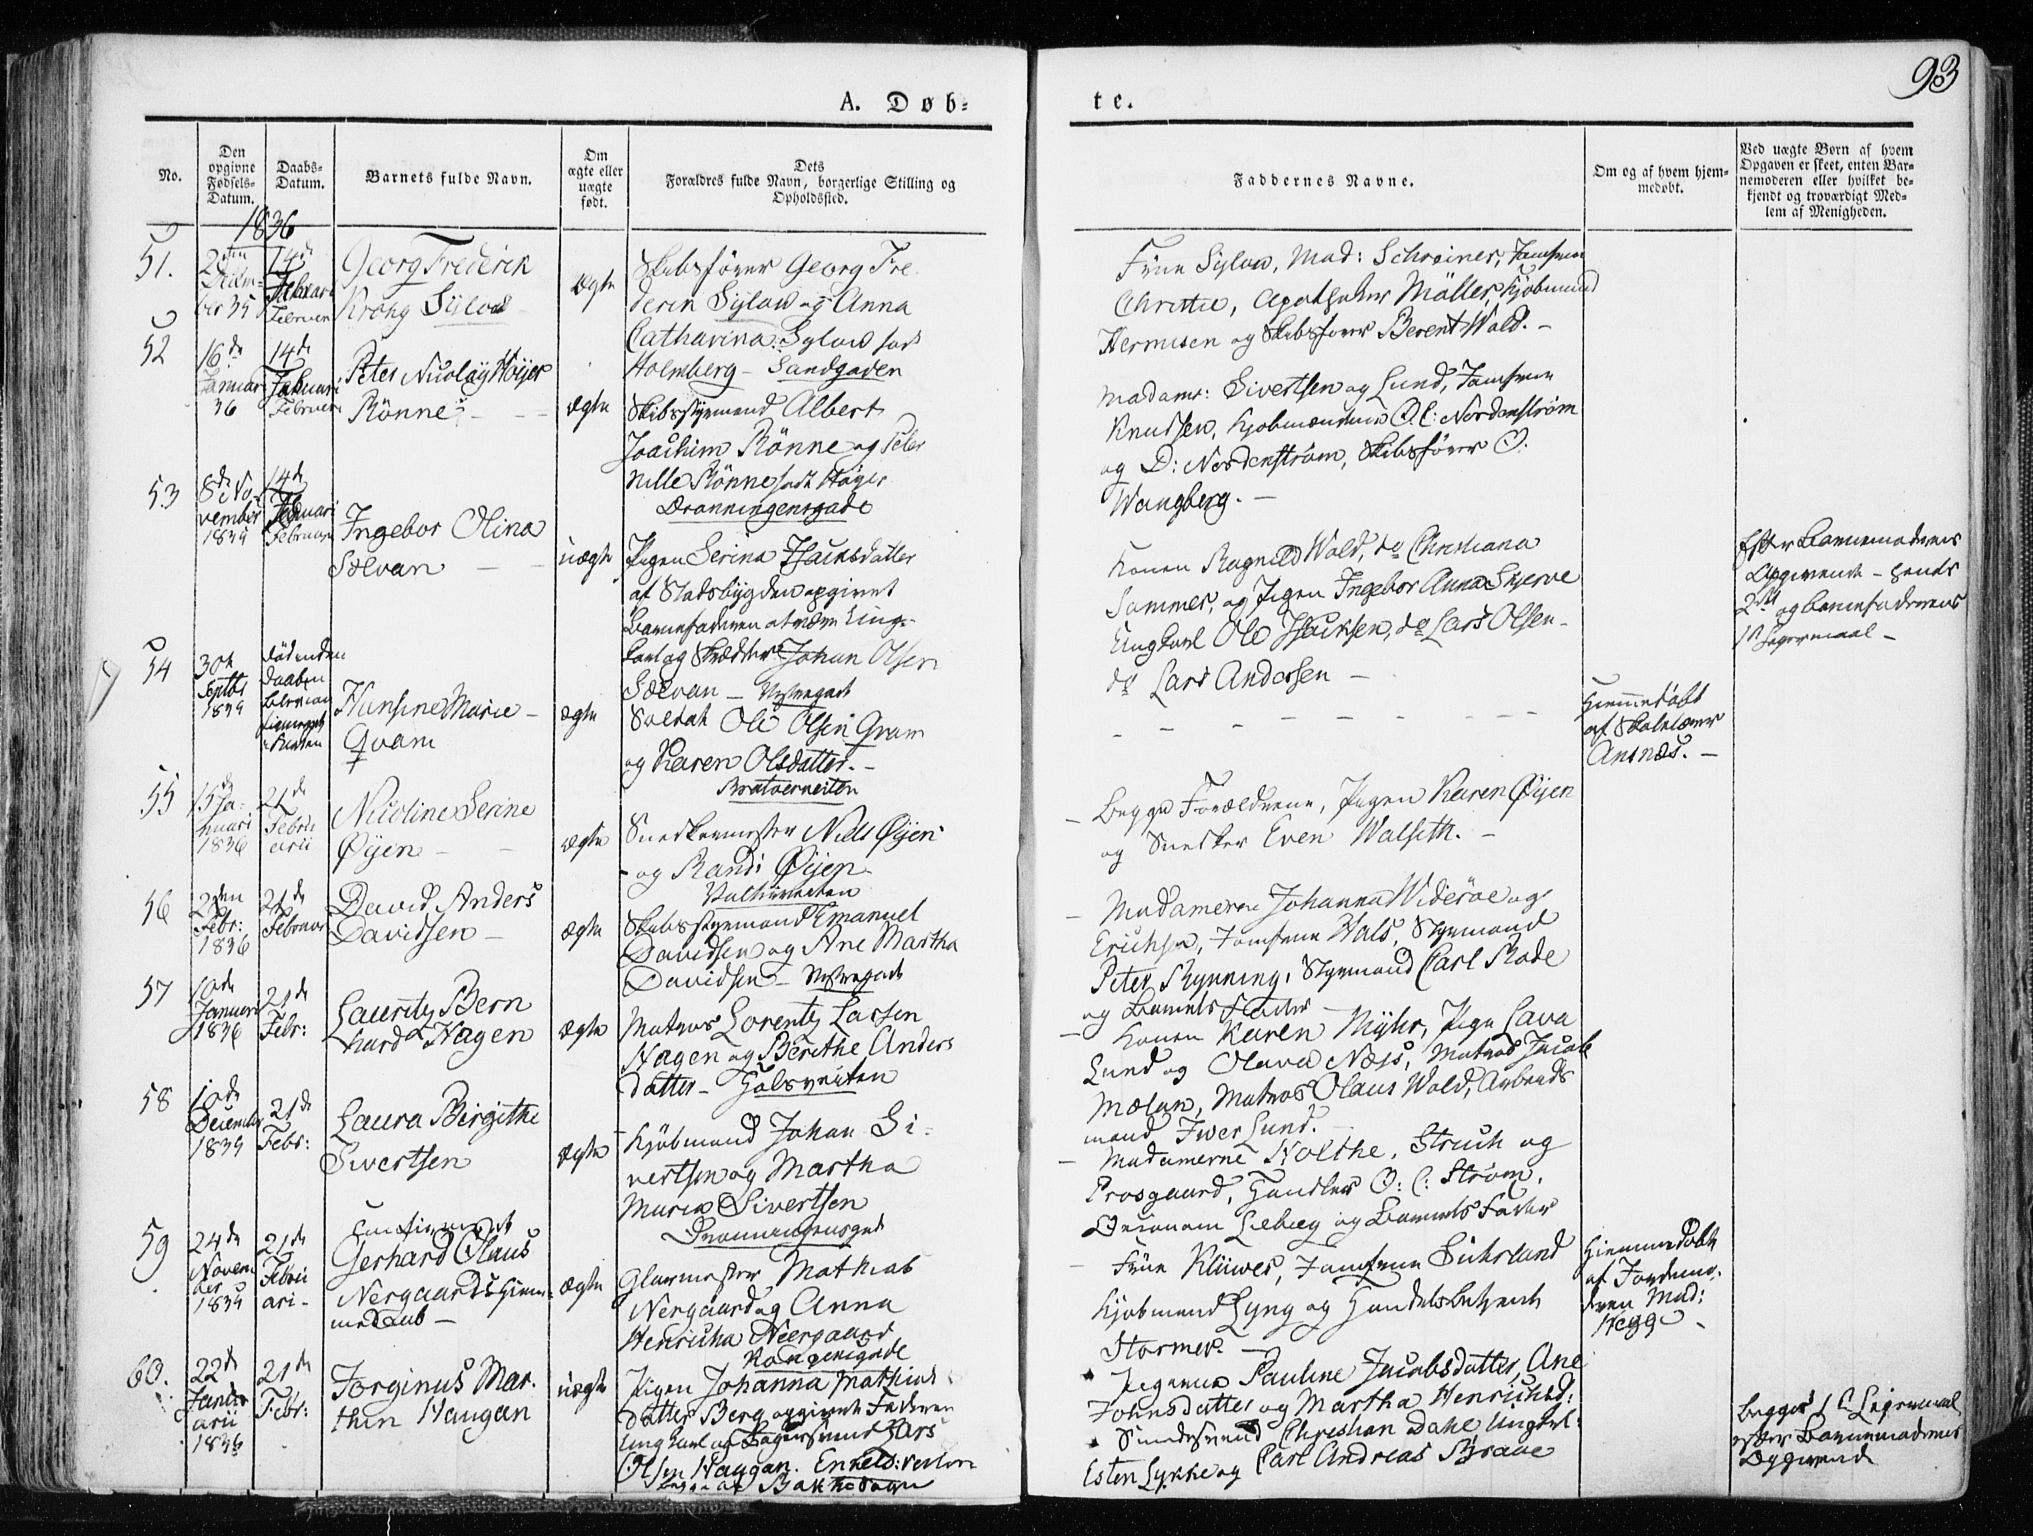 93
A. Døb-
te.
No.
Den
opgivne
Fødsels-
Datum.
Daabs-
Datum.
Barnets fulde Navn.
Om
ægte eller
uægte
født.
Dets
Forældres fulde Navn, borgerlige Stilling og
Opholdssted.
Faddernes Navne.
Om og af hvem hjem-
medøbt.
Ved uægte Børn af hvem
Opgaven er skeet, enten Bar-
nemoderen eller hvilket be-
kjendt og troværdigt Med-
lem af Menigheden.
1836
51.
14de
Februar
Georg Frederik
Krohg Sylow
Ægte
Skibsfører Georg Fre
derik Sylow og Anna
Catharina Sylow født
Holmberg - Sandgaden
Frue Sylow, Mad: Schreiner, Jomfrue
Christie, Apotheker Möller, Kjøbmænd
Hermisen og Skibsfører Berent Wold. -
52
16de
Januar
36
14de
Februar
Peter Nicolay Höyer
Rönne
Ægte
Skibsstyrmand Albert
Joachim Rönne og Peter
nille Rönne født Höyer
Dronningensgade
Madame: Sivertsen og Lund, Jomfrue
Knudsen, Kjøbmændene O. C: Nordenstrøm
og D: Nordenstrøm, Skibsfører O.
Wangberg. -
53
8de No-
vember
14de
Februar
Ingebor Olina
Sælvan
uægte
Pigen Serina
af Stadsbygden opgivet
Barnefaderen at være Ung-
karl og Skrædder Johan Olsen
Sælvan -
Konen Ragnild Wold, do Christiana
Sommer, og Pigen Ingebor Anna Skjerve
Ungkarl Ole Isacksen, do Lars Olsen -
do Lars Andersen -
Efter Barnemoderens
Opgivende - hendes
2det og Barnefaderens
1ste Leiermaal -
54
30te
Septbr
Død inden
Daaben
Hansine Marie -
Qvam
ægte
Soldat Ole Olsen Qvam
og Karen Olsdatter. -
Bratørveiten
Hjemmedøbt
af Skolelærer
Aasnæs. -
55
15de Ja-
nuari
1836
21de
Febru
arii
Nicoline Serine
Øyen -
ægte
Snedkermester Niels Øyen
og Randi Øyen
- Begge Forældrene, Pigen Karen Øyen
og Snedker Even Walseth. -
56
2den
Febr:
1836
21de
Februar
David Anders
Davidsen -
ægte
Skibsstyrmand Emanuel
Davidsen og Ane Martha
Davidsen -
- Madamerne Johanna Widerøe og
Erichsen, Jomfrue Hals, Styrmand
Peter Rhynning, Styrmand Carl Rode
og Barnets Fader
57
10de
Januari
1836
21de
Febr:
Lauritz Bern
hard Hagen
Ægte
Matros Lorentz Larsen
Hagen og Berithe Anders
datter -
- Konen Karen Myhr, Pige Lava
Lund og Olava Næss, Matros Jacob
Mælan, Matros Olaus Wold, Arbeids
mand Iver Lund.
58
10de
December
21de
Febr:
Laura Birgithe
Sivertsen
Ægte
Kjøbmand Johan Si-
vertsen og Martha
Maria Sivertsen
Dronningensgade
- Madamerne Nolthe, Struch og
Prosgaard, Handler O: C: Strøm,
og Barnets Fader
59
24de
Novem
ber
21de
Febru
ari -
Gerhard Olaus
Nergaard Hjem-
medøb -
Ægte
Glarmester Mathias
Nergaard og Anna
Henricha Neergaard
Kongensgade
- Frue Klüwer, Jomfrue Suhrland
Kjøbmand Lyng og Handelsbetjent
Stormer. -
Hjemmedøbt
af Jordemo-
deren Mad:
Hegge -
60.
22de
Janu
arii
1836
21de
Febr:
Jørginus Mar-
thin Haugan
uægte
Pigen Johanna Mathias
datter Berg opgivet Faderen
Ungkarl og Lars
Olsen Haugan.
begge af Bakke Sogn
Pigerne Pauline Jacobsdatter, Ane
Johnsdatter og Martha Henrichsd:
Christian Dahl Ungkarl:
Esten Lykke og Carl Andreas Braae
Begges 1ste Leiermaal
efter Barnemoderens
Opgivende